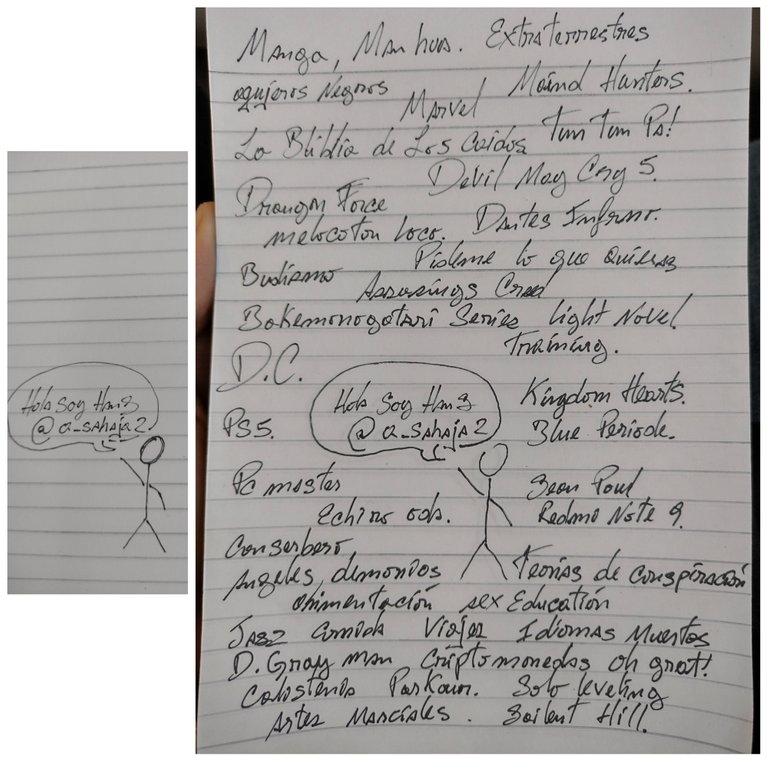 Hola Soy Hans
@a_sahaja2.
Manga, Man hua. Extraterrestres
agujeros Negros
Marvel Maind Hunters.
La Bliblia de Los Caidos Tum Tum Pa!
Devil May Cry 5.
Drangon Force
melocoton loco. Dantes Inferno.
Budismo Pideme lo que Quieras
Assasings Creed
Bakemonogatari Series light Novel
Training.
D.C.
Hola Soy Hans
@a_sahaja2
Kingdom Hearts.
PS5. Blue Periode.
Pc master Sean Paul
Echiro oda. Redmi Note 9.
Canserbero
Angeles, demonios Teorias de conspiración
sex Education
Jazz Comida Viajes Idiomas Muertos
D. Gray man Criptomonedas oh great!
Calistenia Parkour. Solo leveling
Artes Marciales. Sailent Hill.